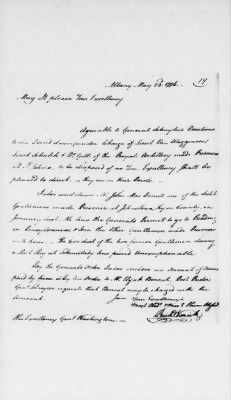 Albany May 26. 1776
May It please Your Excellency
Agreeable to General Schuyler's Directions
I do send down under Charge of Lieut Van Waggoner
Lieut Schalch & Mr. Gill of the Royal Artillery made Prisoners
at St. Johns, to be disposed of as Your Excellency shall be
pleased to direct. They are on their Parole.
I also send down Mr. John one of the
Gentlemen made Prisoners at Johnstown, Tryon County, in
January last. He has the Generals Permit to go to Reading
in Pennsylvania where the other Gentlemen made Prisoners
with him. The Conduct of the two former Gentlemen during
their Stay at Schenectady has proved Unexceptionable.
By the Generals order I also enclose an Account of Monies
paid by him & by his order to Mr. Elijah Bennet, Post Rider.
Genl Schuyler requests that Bennet may be charged with the
Amount.
I am Your Excellency's
Most Obedt & Most Humble Servt
His Excellency Genl Washington